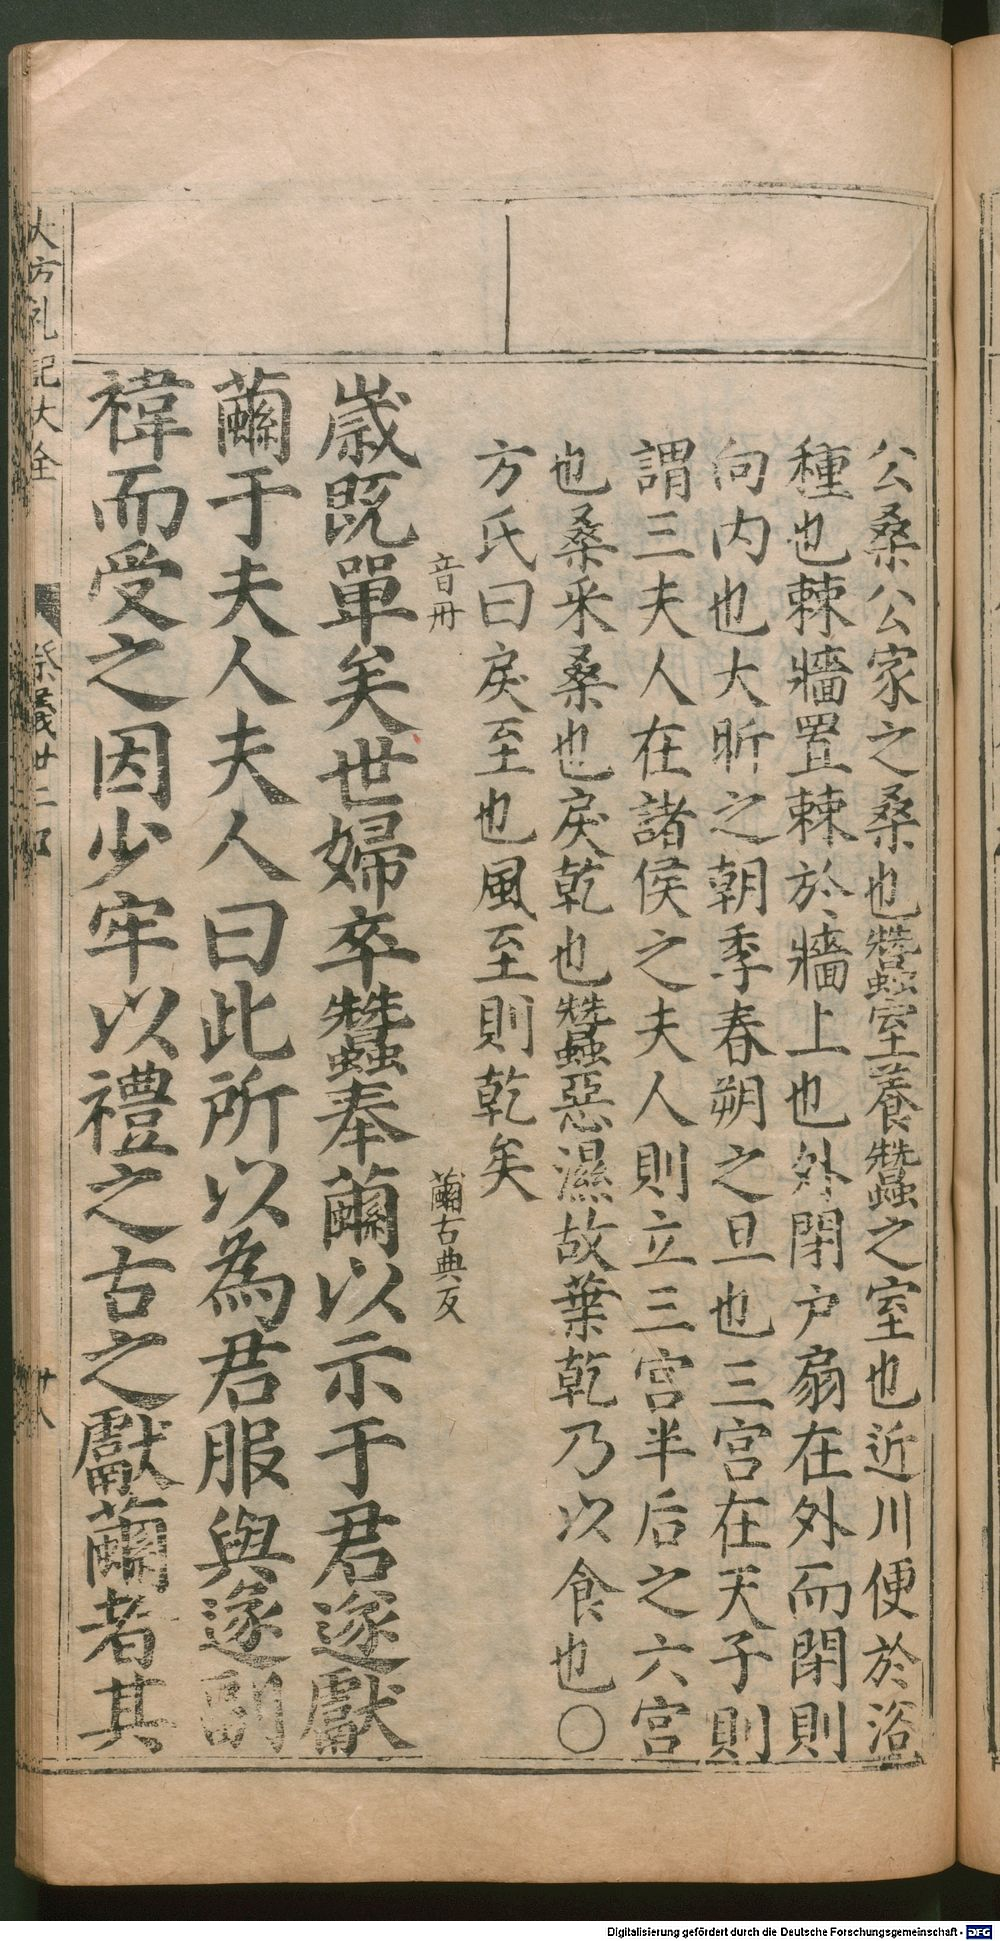 公桑公家之桑也蠶室養蠶之室也近川便於浴
種也棘牆置棘於牆上也外閉戶扇在外而閉則
向内也大昕之朝季春朔之旦也三宮在天子則
謂三夫人在諸侯之夫人則立三宮半后之六宮
也桑采桑也戾乾也蠶惡濕故葉乾乃以食也〇
方氏曰戾至也風至則乾矣
音丹
繭古典反
歲既單矣世婦卒蠶奉繭以示于君遂獻
繭于夫人夫人曰此所以為君服與遂副
褘而受之因少牢以禮之古之獻繭者其
大方礼記大全 祭義廿二 廿八
Digitalisierung gefördert durch die Deutsche Forschungsgemeinschaft - DFG